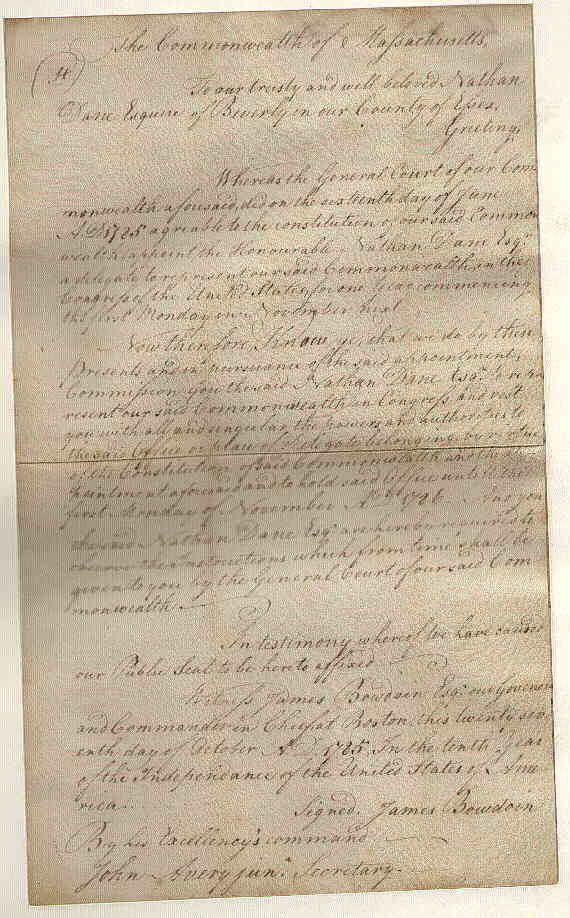 The Commonwealth of Massachusetts,
To our trusty and well beloved Nathan
Dane Esquire of Beverly in our County of Essex,
Greeting,
Whereas the General Court of our Com
monwealth aforesaid, did on the sixteenth day of June
A.D. 1785 agreable to the constitution of our said Common
wealth, appoint the Honourable Nathan Dane Esqr.
a delegate to represent our said Commonwealth, in the
Congress of the United States, for one Year commencing
the first Monday in November next
Now therefore Know ye, that we do by these
Presents and in pursuance of the said appointment,
Commission you the said Nathan Dane Esqr. to rep
resent our said Commonwealth in Congress, and vest
you with all and singular the powers and authorities to
the said Office or place of Delegate belonging by virtue
of the Constitution of said Commonwealth and the
pointment aforesaid and to hold said Office until the
first Monday of November A.D. 1786 And you
the said Nathan Dane Esqr. are hereby required to
observe the Instructions which from time shall be
given to you by the General Court of our said Com
monwealth
In testimony whereof We have caused
our Public Seal to be hereto affixed
Witness James Bowdoin Esqr. our Governor
and Commander in Chief at Boston, this twenty sev
enth day of October A.D. 1785 In the tenth Year
of the Independance of the United States of Ame
rica.
Signed. James Bowdoin
By his Excellency's command
John Avery junr. Secretary.